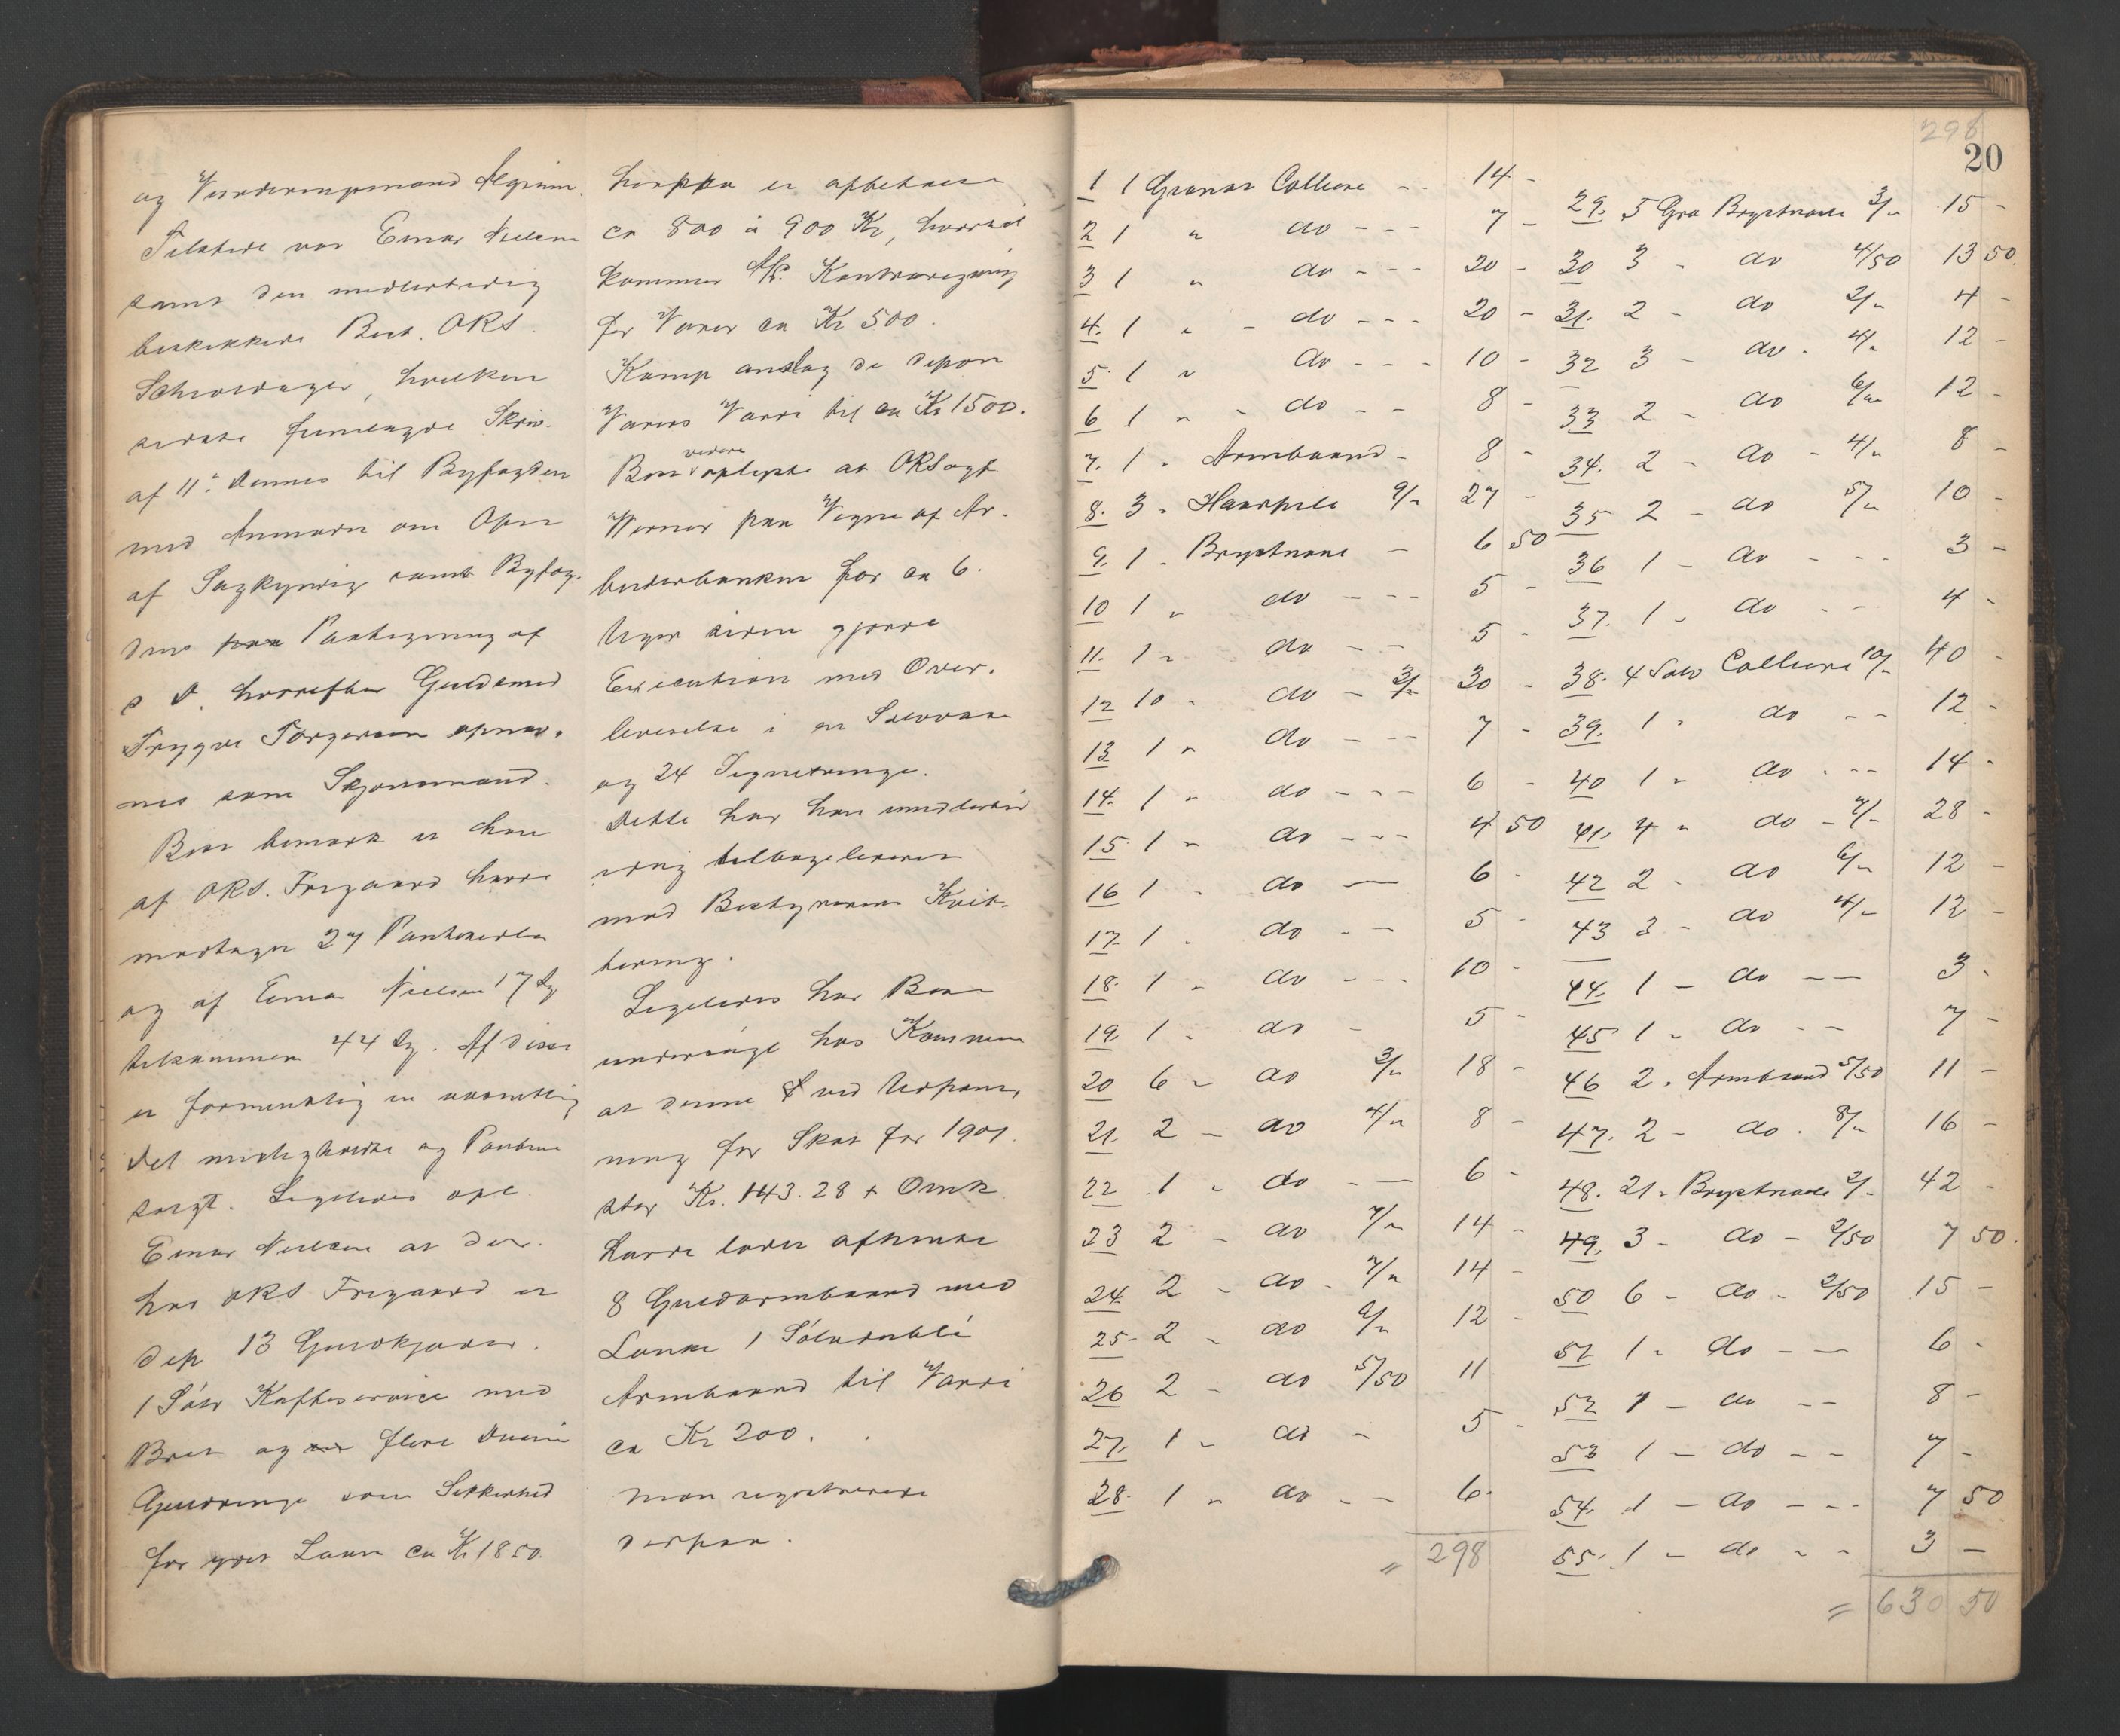 og Vurderingsmand
Tilstede var Einar Nielsen
samt den midlertidig
beskikkede Best. ORS.
hvilken
sidste fremlagde Skriv.
af 11te dennes til Byfogden
med Anmodn om Opn
af Sagkyndig samt Byfog.
dens Paategning af
s. D. hvorefter Guldsmed
Trygve Torgersen opnæv.
nes som Skjønsmand.
Boet bemærk er
af ORS. Frogaard havde
modtaget 27 Pantesedler
og af Einar Nielsen 17 do
tilsammen 44 do. Af disse
er formentlig en væsentlig
Del
solgt. Ligeledes opl.
Einar Nielsen at der
hos ORS Frogaard er
dep 13 Guldkjæder.
1 Sølv Kaffeservice med
Bret og flere Dusin
Guldringe som Sikkerhed
for ydet Laan ca Kr 1850.
er afbetalt
ca 800 à 900 Kr, hvortil
kommer Kontraregning
for Varer ca Kr 500.
Komp anslog de depon
Varers Værdi til ca Kr 1500.
videre
Boet oplyste at ORSagf
Werner paa Vegne af Ar.
beiderbanken for ca 6.
Uger siden gjorde
Execution med Over.
leverelse i en
og 24 Signetringe.
Dette har han imidlertid
idag tilbageleveret
mod Bestyrerens Kvit-
tering.
Ligeledes har Boet
undersøgt hos Kommunen
at denne ved Udpant.
ning for Skat for 1901.
stor Kr. 143.28 + Omk
havde ladet afhente
8 Guldarmbaand med
Lænke 1 Sølvdublé
Armbaand til Værdi
ca Kr 200.
man registrerede
derpaa.
298
20
1 1 Granat Colliere -- 14 -
2 1 " do --- 7 -
3 1 " do --- 20 -
4. 1 " - do --- 20 -
5. 1 " do --- 10 -
6 1 " - do -- 8 -
7. 1 " Armbaand - 8 -
8. 3 " Haarpile 9/- 27 -
9. 1 - Brystnaal - 6 50
10 1 " do --- 5 -
11. 1 " do -- 5 -
12 10 - do - 3/- 30 -
13. 1 " do --- 7 -
14. 1 " do --- 6 -
15. 1 " do --- 4 50
16 1 . do — 6 -
17. 1 . do -- 5 -
18. 1 . do --- 10 -
19 1 . do - 5 -
20 6 - do 3/- 18 -
21. 2 - do 4/- 8 -
22 1 - do -— 6 -
23 2 - do 7/- 14 -
24. 2 - do - 7/- 14 -
25- 2 - do 6/- 12 -
26 2 - do 5/50 11
27. 1 - do - 5 -
28. 1 " do -- 6.
= 298
29. 5 Gra Brystnaale 3/- 15 -
30 3 - do 4/50 13 50.
31. 2 - do 2/- 4 -
32 3 - do . 4/- 12 -
33 2 - do 6/- 12 -
34. 2 - do - 4/- 8 -
35 2 - do 5/- 10 -
36 1 - do --- 3 -
37. 1 - do --- 4 -
38. 4 Sølv Colliere 10/- 40 -
39. 1 " do -- 12 -
40 1 " do --- 14 -
41. 4 " do - 7/- 28 -
42 2 - do 6/- 12 -
43 3 - do 4/- 12 -
44. 1 - do -— 3 -
45 1 - do -- 7 -
46 2 . Armbaand 5/50 11 -
47. 2 - do . 8/- 16 -
48. 21 - Brystnaale 2/- 42 -
49. 3 - do - 2/50 7 50.
50 6 - do - 2/50 15 -
51 1 - do -— 6 -
52 1 - do -- 8 -
53 1 - do -- 7 -
54. 1 - do --- 7 50
55. 1 - do -- 3 —
= 630 50